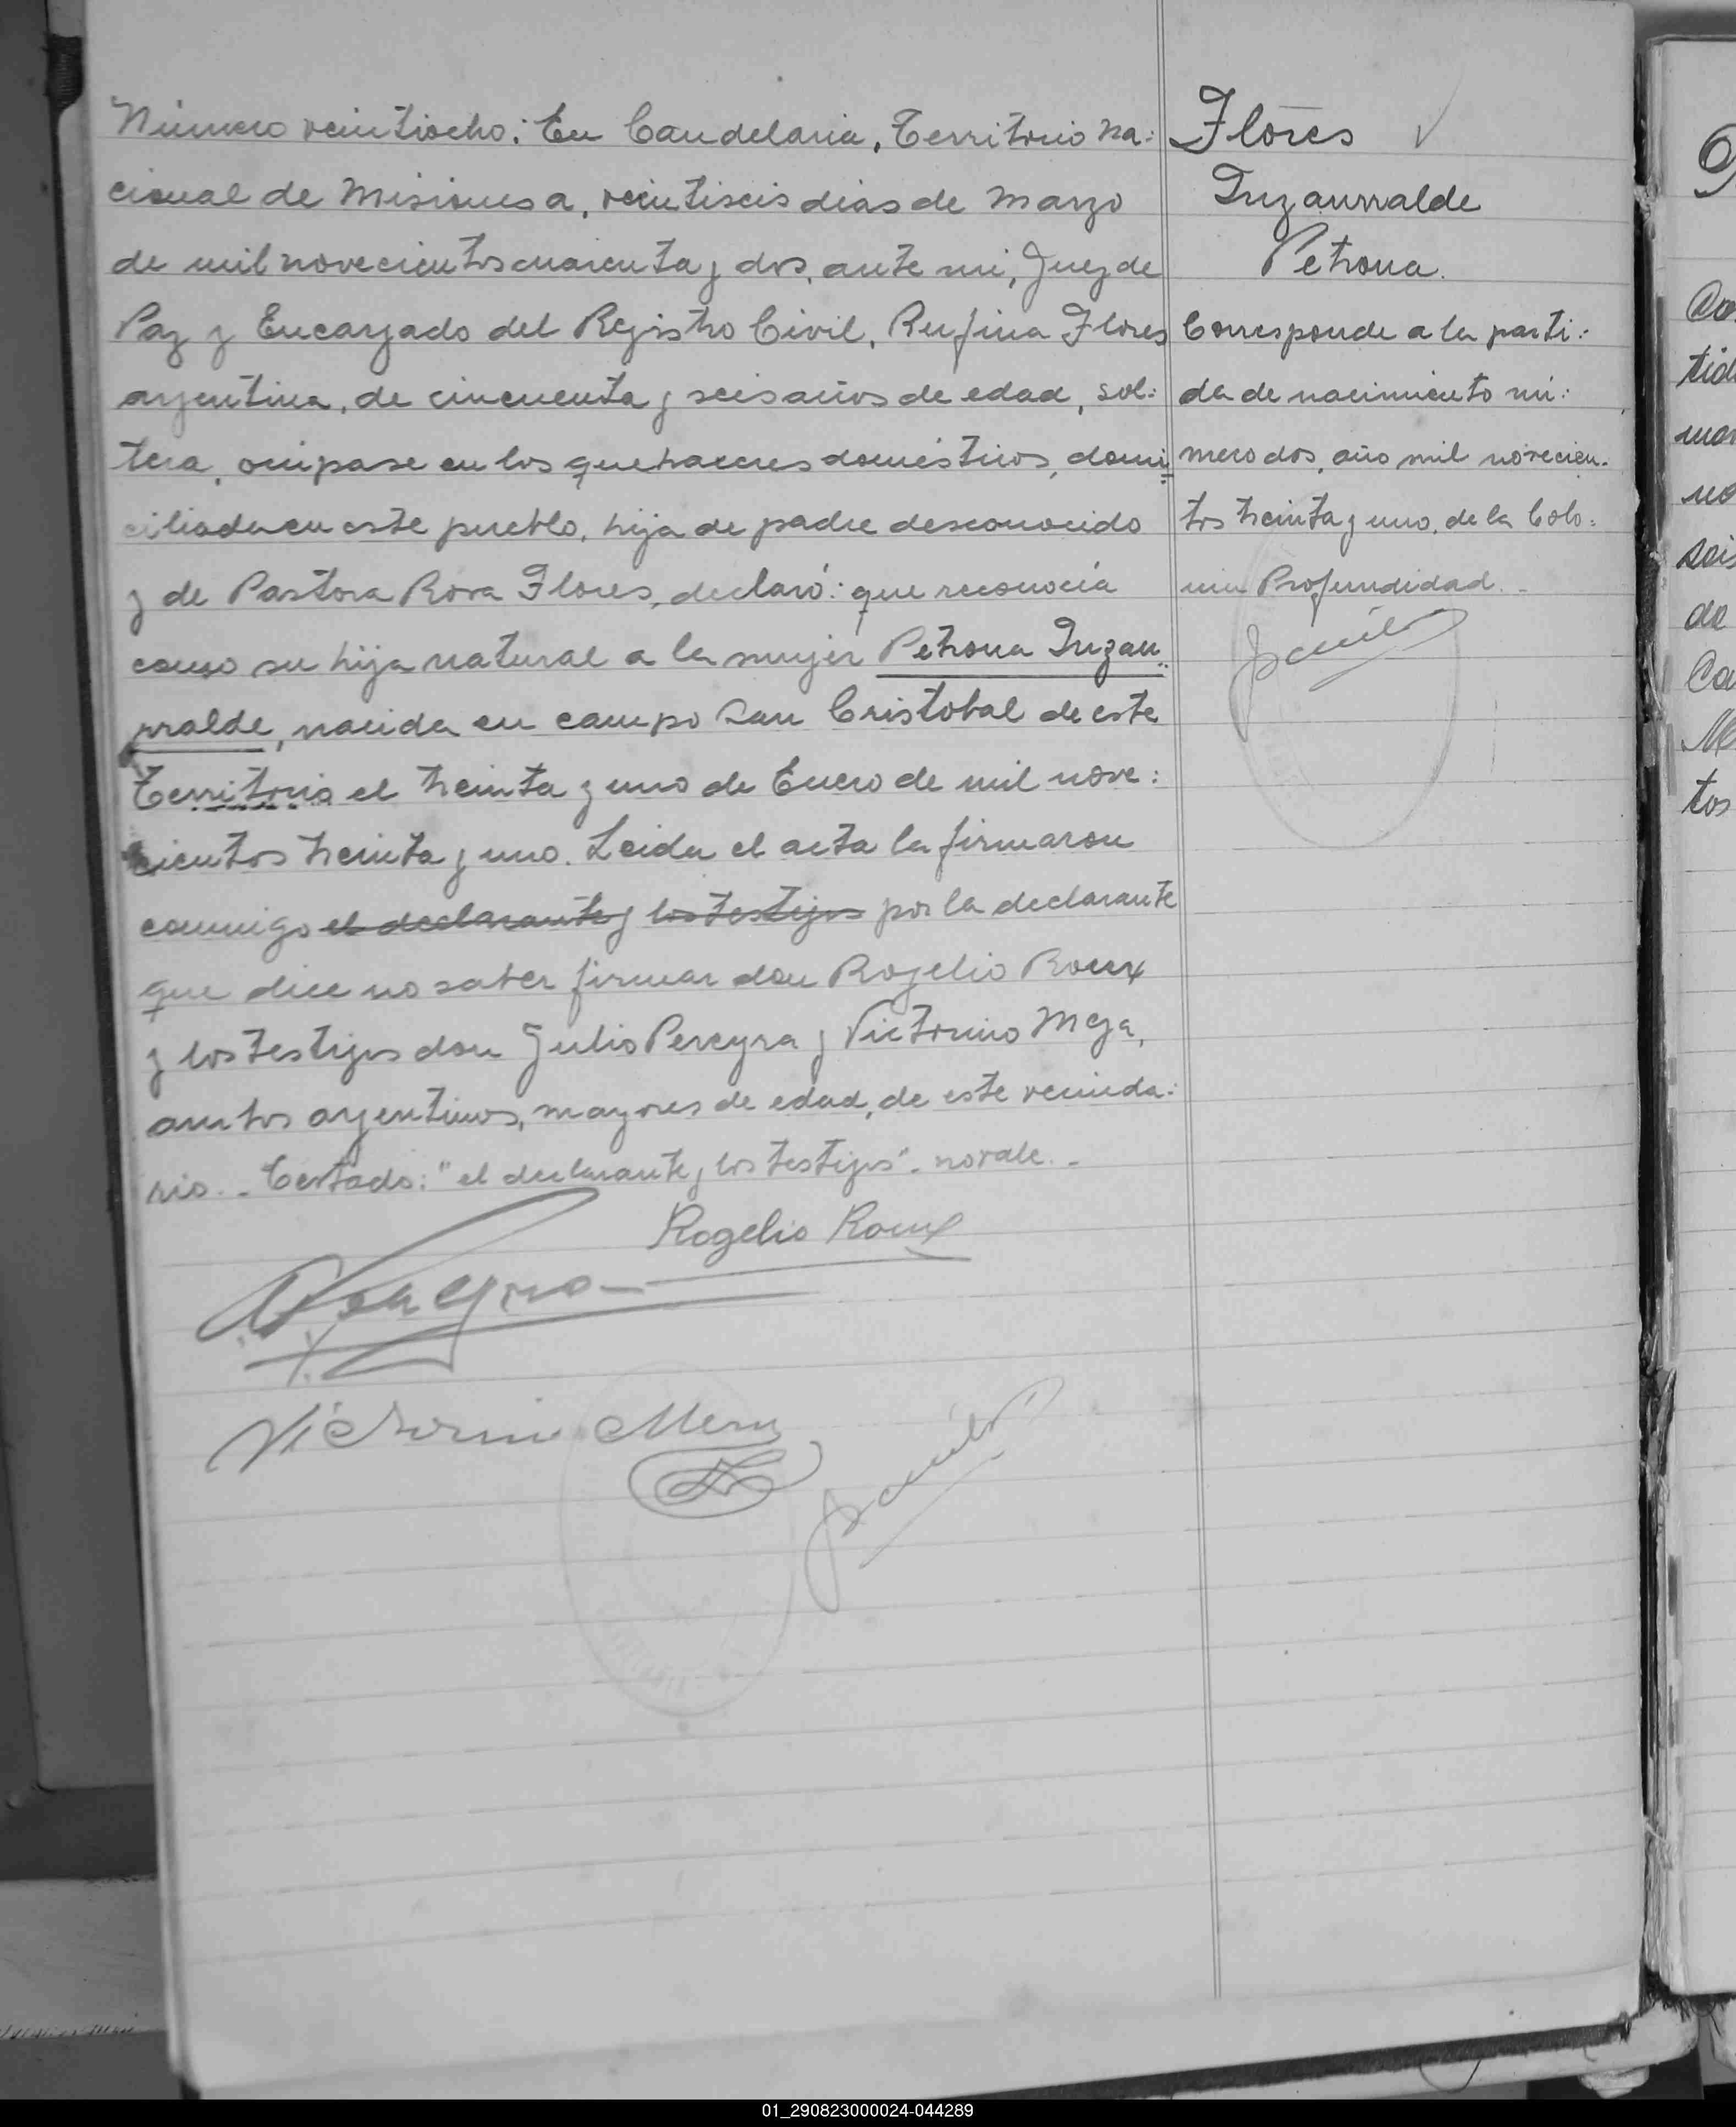 Número veintiocho: En Candelaria, Territorio Na:
cional de Misiones a, veintiseis dias de Marzo
de mil novecientos cuarenta y dos, ante mi, Juez de
Paz y Encargado del Registro Civil, Rufina Flores
argentina, de cincuenta y seis años de edad, sol:
tera, ocupase en los quehaceres domésticos, domi
ciliada en este pueblo, hija de padre desconocido
y de Pastora Rosa Flores, declaró: que reconocía
como su hija natural a la mujer Petrona Inzau
rralde, nacida en campo San Cristobal de este
Territorio el treinta y uno de Enero de mil nove:
cientos treinta y uno. Leida el acta la firmaron
conmigo el declarante y los testigos por la declarante
que dice no saber firmar don Rogelio Roux
y los testigos don Julio Pereyra y Victorino Meza,
ambos argentinos, mayores de edad, de este vecinda:
rio. - Testado: "el declarante y los testigos". no vale. -
Rogelio Roux
Victorino Meza
Flores
Inzaurralde
Petrona.
Corresponde a la parti:
da de nacimiento nú:
mero dos, año mil novecien.
tos treinta y uno, de la Colo:
nia Profundidad. -
tos
01_290823000024-044289